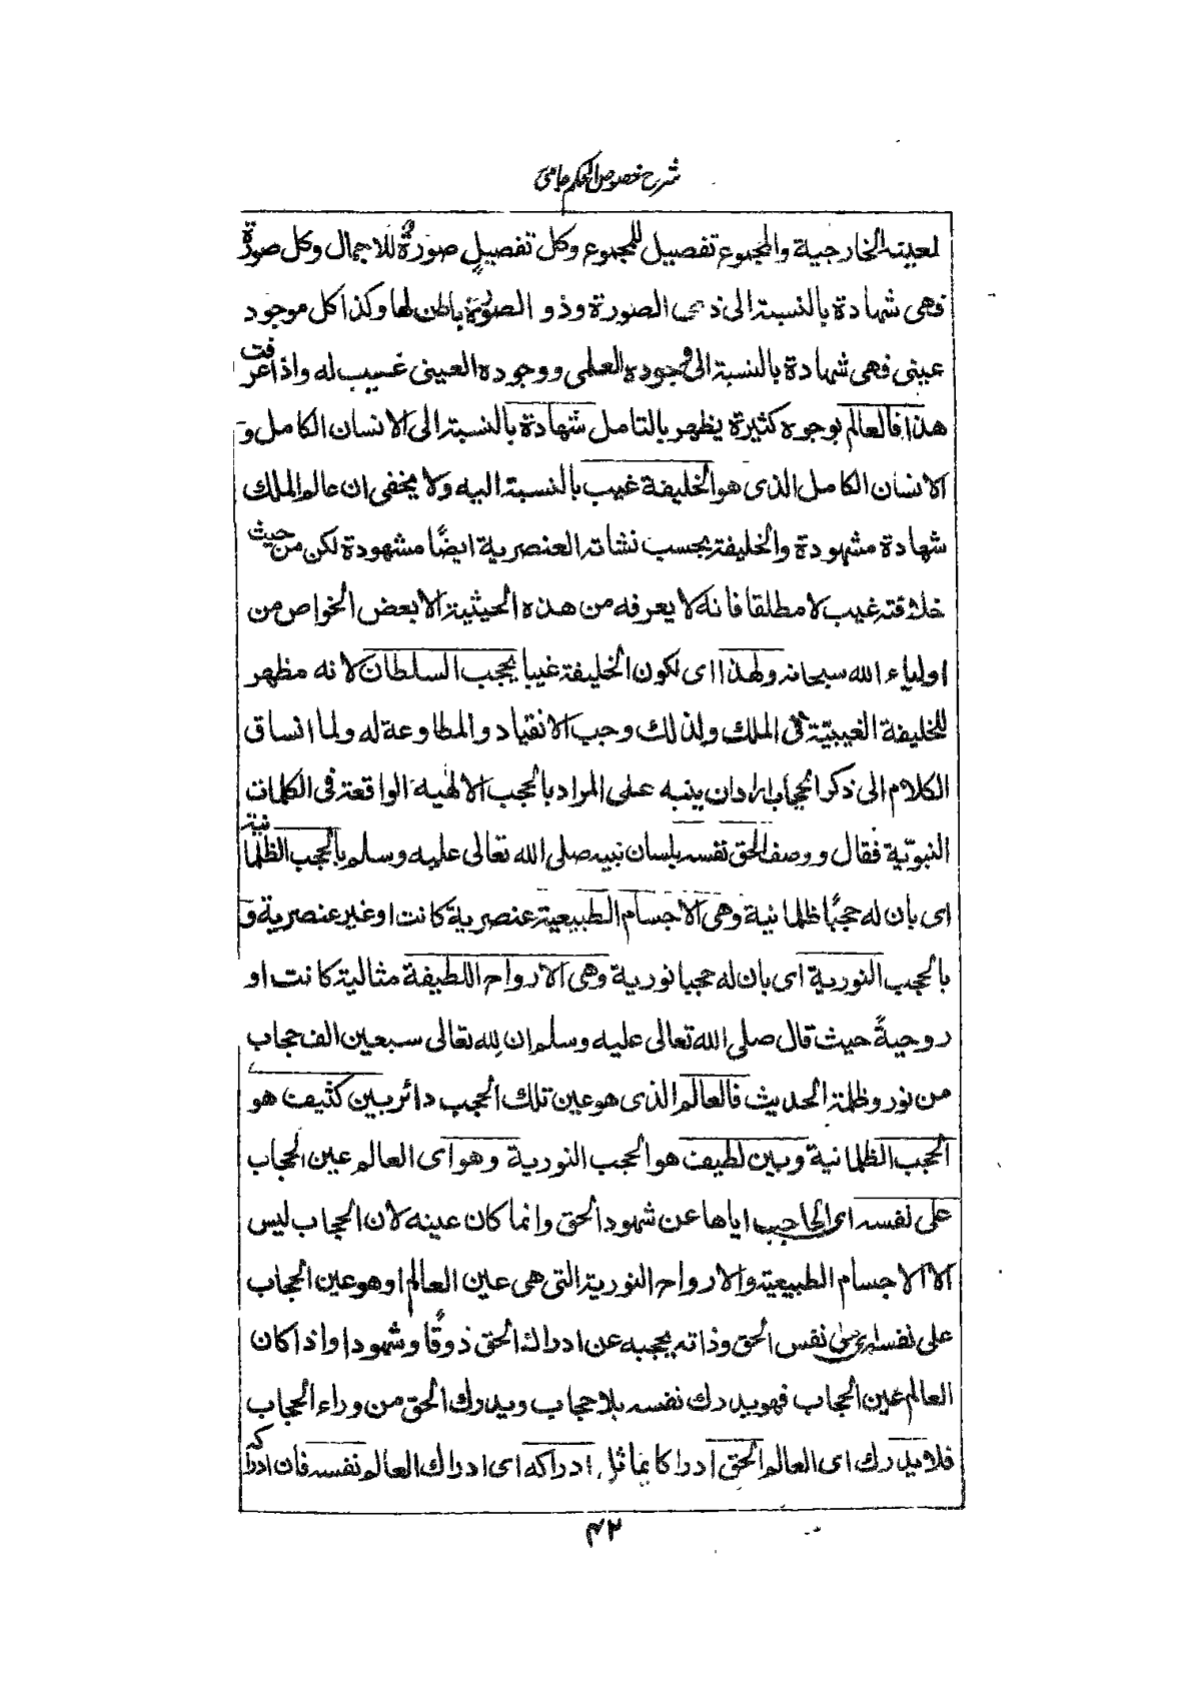 شرح فصوص الحکم جامی
لعينه الخارجية والمجموع تفصيل للمجموع وكل تفصيل صورة للاجمال وكل صورة
فهى شهادة بالنسبة الى ذى الصورة وذو الصورة باطن لها وكذا كل موجود
عينى فهى شهادة بالنسبة الى وجوده العلمى ووجوده العينى غسيب له واذا عرفت
هذا فالعالم بوجوه كثيرة يظهر بالتامل شهادة بالنسبة الى الانسان الكامل و
الانسان الكامل الذى هو الخليفة غيب بالنسبة اليه ولا يخفى ان عالم الملك
شهادة مشهودة والخليفة بحسب نشاته العنصرية ايضًا مشهودة لكن من حيث
خلافته غيب لا مطلقا فانه لا يعرفه من هذه الحيثية الا بعض الخواص من
اولياء الله سبحانه ولهذا اى لكون الخليفة غيبا يحجب السلطان لانه مظهر
للخليفة الغيبيّة فى الملك ولذلك وجب الانقياد والمطاوعة له ولما انساق
الكلام الى ذكر الحجاب اراد ان ينبه على المراد بالحجب الالهية الواقعة فى الكلمات
النبويّة فقال ووصف الحق نفسه بلسان نبيه صلى الله تعالى عليه وسلم بالحجب الظلمانية
اى بان له حجبًا ظلمانية وهى الاجسام الطبيعية عنصرية كانت او غير عنصرية و
بالحجب النورية اى بان له حجبا نورية وهى الارواح اللطيفة مثالية كانت او
روحيةً حيث قال صلى الله تعالى عليه وسلم ان لله تعالى سبعين الف حجاب
من نور وظلمة الحديث فالعالم الذى هو عين تلك الحجب دائر بين كثيف هو
الحجب الظلمانية وبين لطيف هو الحجب النورية وهو اى العالم عين الحجاب
على نفسه اى الحاجب اياها عن شهود الحق وانما كان عينه لان الحجاب ليس
الا الاجسام الطبيعية والارواح النورية التى هى عين العالم او هو عين الحجاب
على نفسه اى على نفس الحق وذاته يحجبه عن ادراك الحق ذوقًا وشهودا واذا كان
العالم عين الحجاب فهو يدرك نفسه بلا حجاب ويدرك الحق من وراء الحجاب
فلا يدرك اى العالم الحق ادراكا يماثل ادراكه اى ادراك العالم نفسه فان ادراكه
۴۲